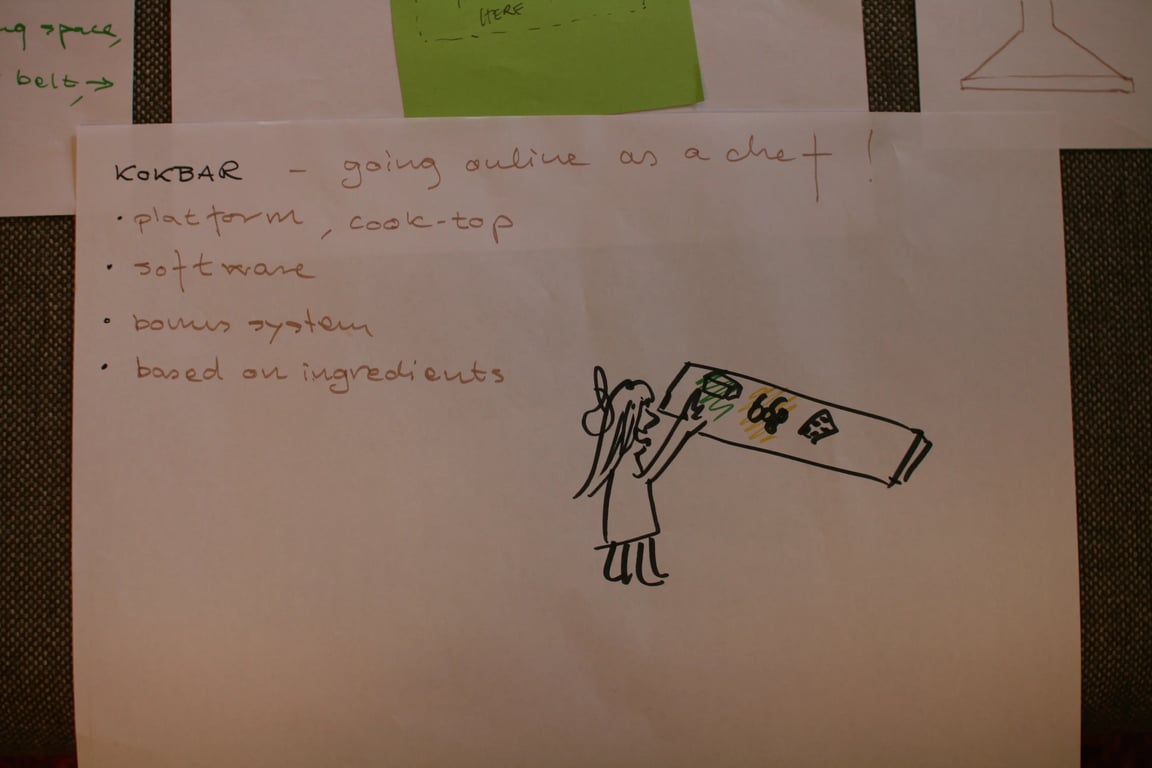 HERE
space,
belt, →
KOKBAR - going online as a chef!
• platform, cook-top
• software
• bonus system
• based on ingredients